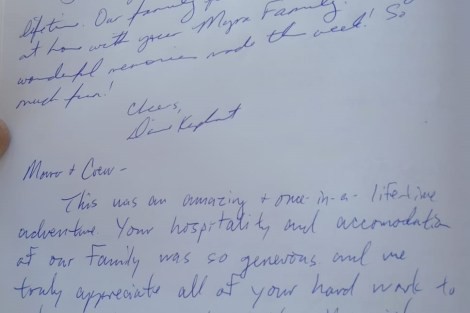 lifetime. Our family f
at home with your Moyra Family.
wonderful memories made this week! So
much fun!
Cheers,
Mauro + Crew -
This was an amazing + once-in-a-lifetime
adventure Your hospitality and accomodation
of our Family was so generous and we
truly appreciate all of your hard work to